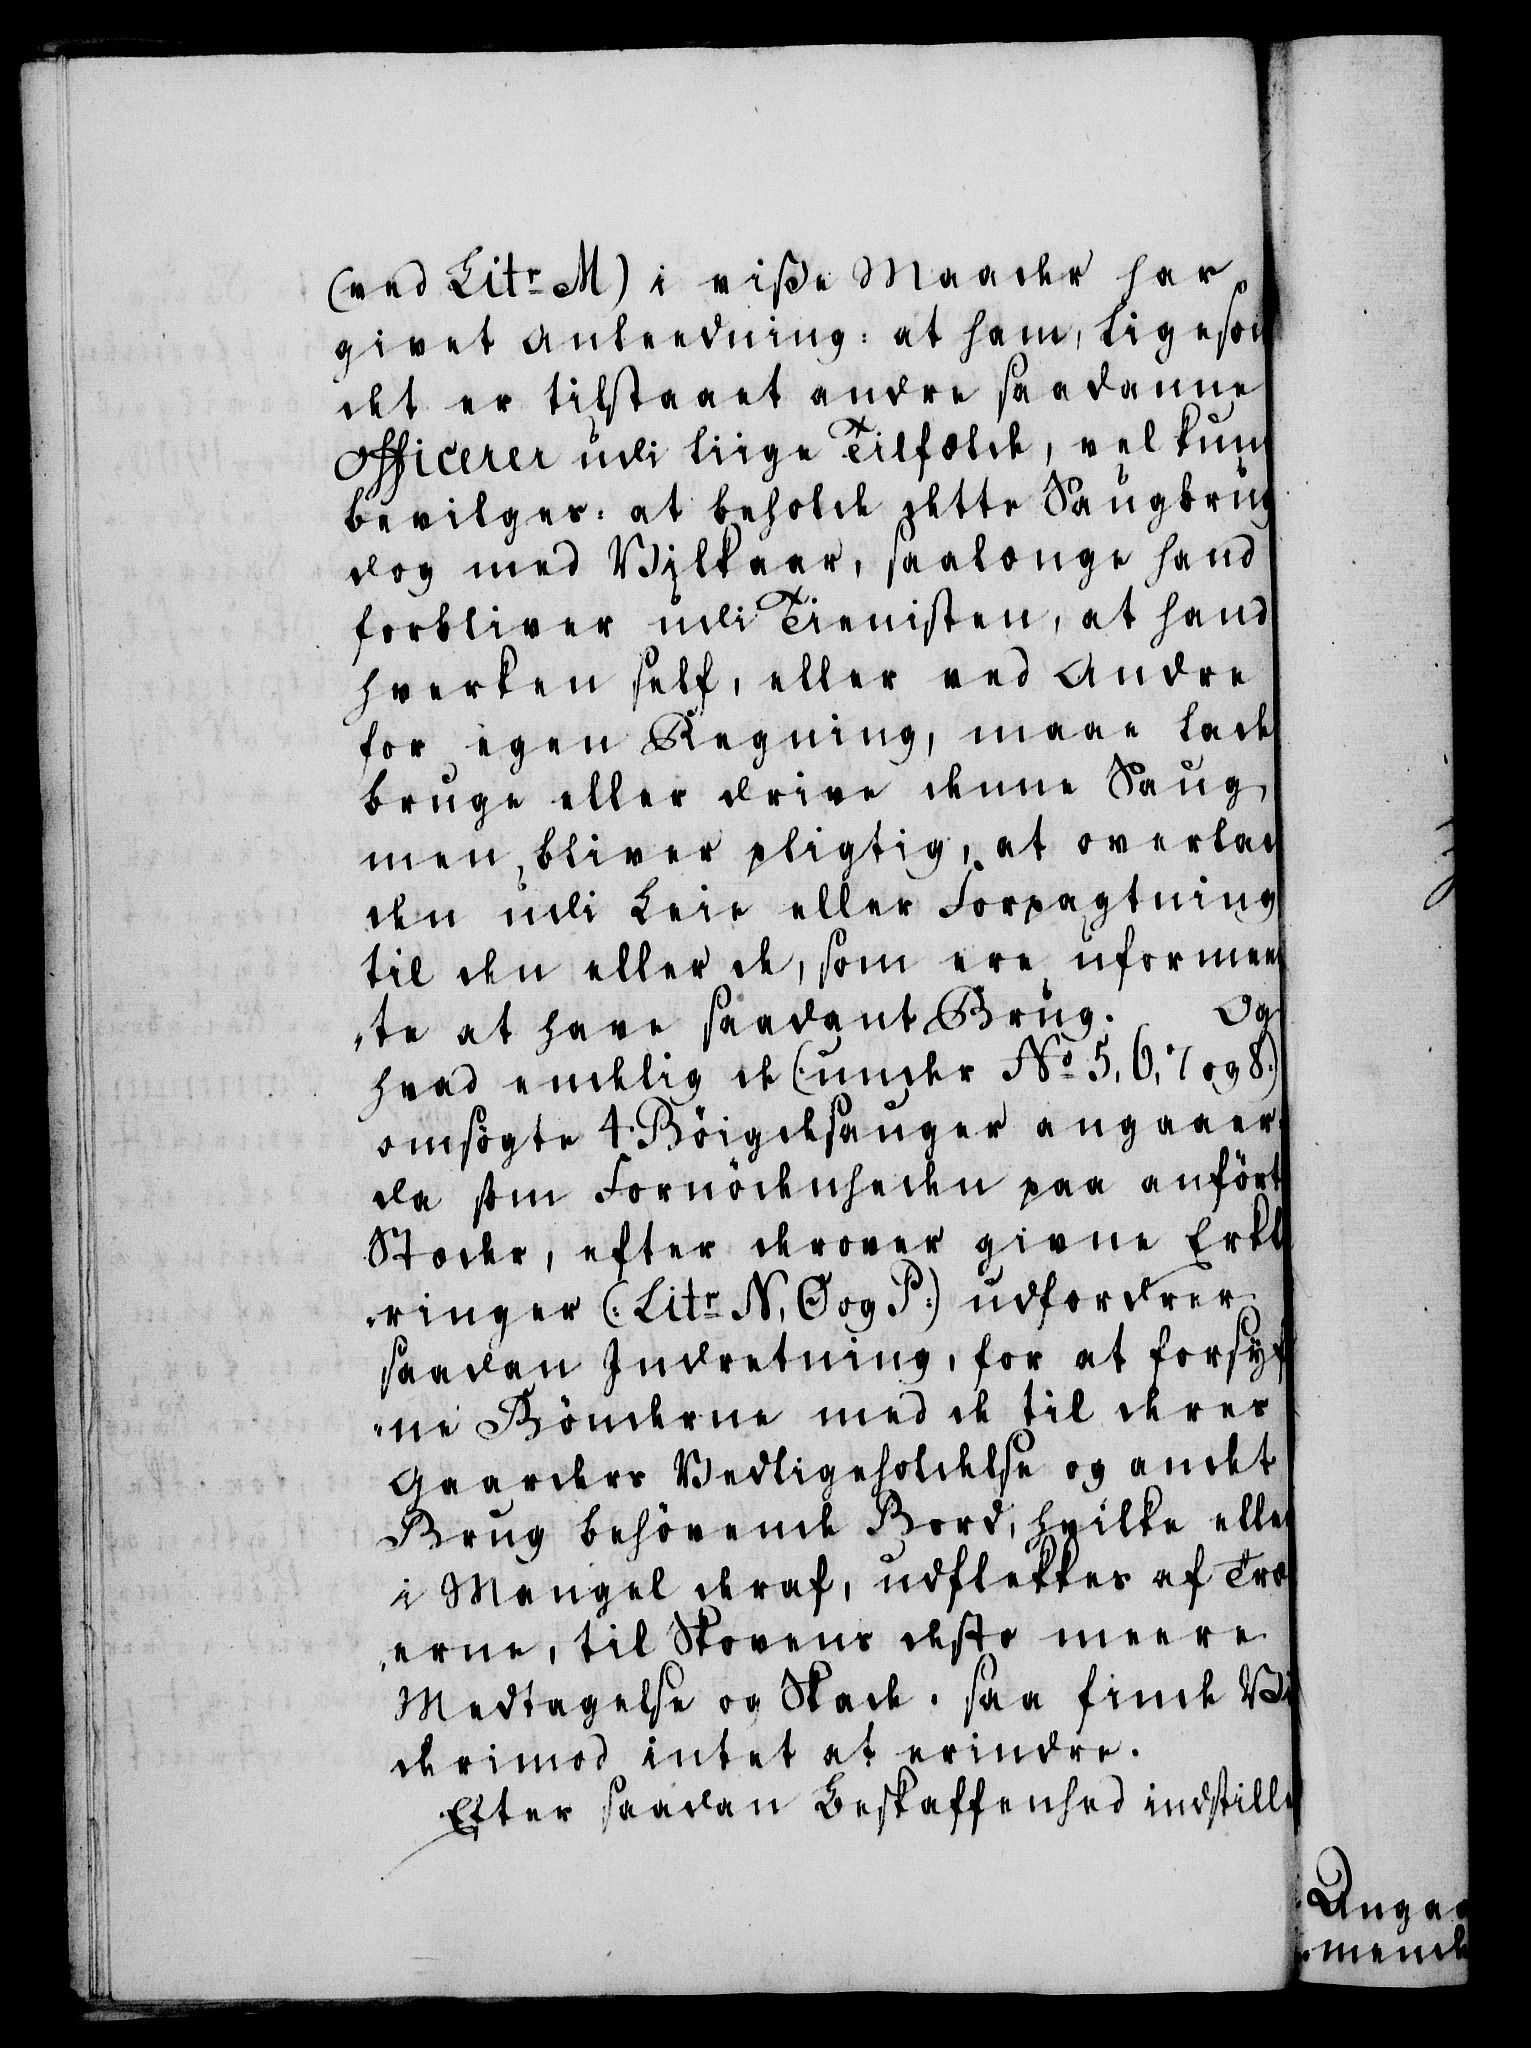 (ved Litr M) i visße Maader har
givet Anleedning: at ham, ligesom
det er tilstaaet andre saadanne
Officerer udi liige Tilfælde, vel kun
bevilges: at beholde dette Saugbrug
dog med Vilkaar, saalænge hand
forbliver udi Tienisten, at hand
hverken self, eller ved Andre
for egen Regning, maae lade
bruge eller drive denne Saug,
men, bliver pligtig, at overlad
den udi Leie eller Forpagtning
til den eller de, som ere uformeen
"te at have saadant Brug. Og
hvad endelig de (: under No 5, 6, 7 og 8:)
omsögte 4. Böigdesauger angaaer:
da som Fornödenheden paa anfört
Stæder, efter derover givne Erklæ
"ringer (: Litr N, O og P:) udfordrer
saadan Indretning, for at forsÿ
"ne Bönderne med de til deres
Gaarders Vedligeholdelse og andet
Brug behövende Bord, hvilke eller
i Mangel deraf, udflekkes af Træ
"erne, til Skovens desto meere
Medtagelse og Skade. saa finde Vi
derimod intet at erindre.
Efter saadan Beskaffenhed indstille
Angaa
"mende